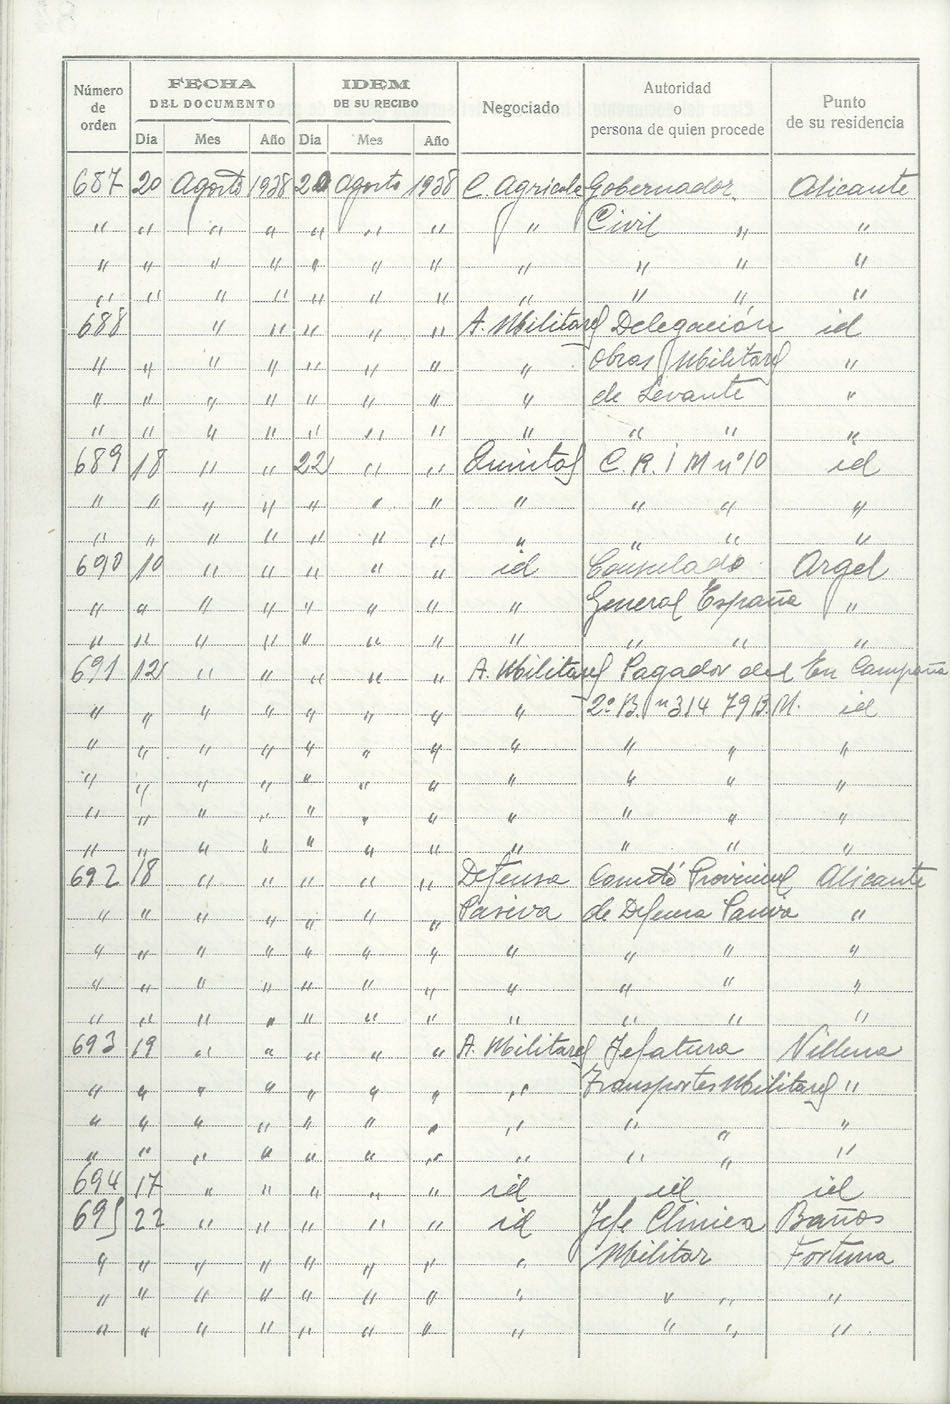 Número de orden FECHA DEL DOCUMENTO IDEM DE SU RECIBO Negociado Autoridad o persona de quien procede Punto de su residencia
Dia Mes Año Dia Mes Año
687 20 Agosto 1938 20 Agosto 1938 C. Agricola Gobernador Alicante
" " " " " " " " Civil " "
" " " " " " " " " " "
" " " " " " " " " " "
688 " " " " " A. Militares Delegación id
" " " " " " " " Obras Militares "
" " " " " " " " de Levante "
" " " " " " " " " " "
689 18 " " 22 " " Quintas C. R. I M nº 10 id
" " " " " " " " " " "
" " " " " " " " " " "
690 10 " " " " " id Consulado Argel
" " " " " " " " General España "
" " " " " " " " " " "
691 12 " " " " " A. Militares Pagador del En Campaña
" " " " " " " " 2º B. n 314 79 B.M. id
" " " " " " " " " " "
" " " " " " " " " " "
" " " " " " " " " " "
" " " " " " " " " " "
692 18 " " " " " Defensa Comité Provincial Alicante
" " " " " " " Pasiva de Defensa Pasiva "
" " " " " " " " " " "
" " " " " " " " " " "
" " " " " " " " " " "
693 19 " " " " " A. Militares Jefatura Villena
" " " " " " " " Transportes Militares "
" " " " " " " " " " "
" " " " " " " " " " "
694 17 " " " " " id id id
695 22 " " " " " id Jefe Clinica Baños
" " " " " " " " Militar Fortuna
" " " " " " " " " " "
" " " " " " " " " " "